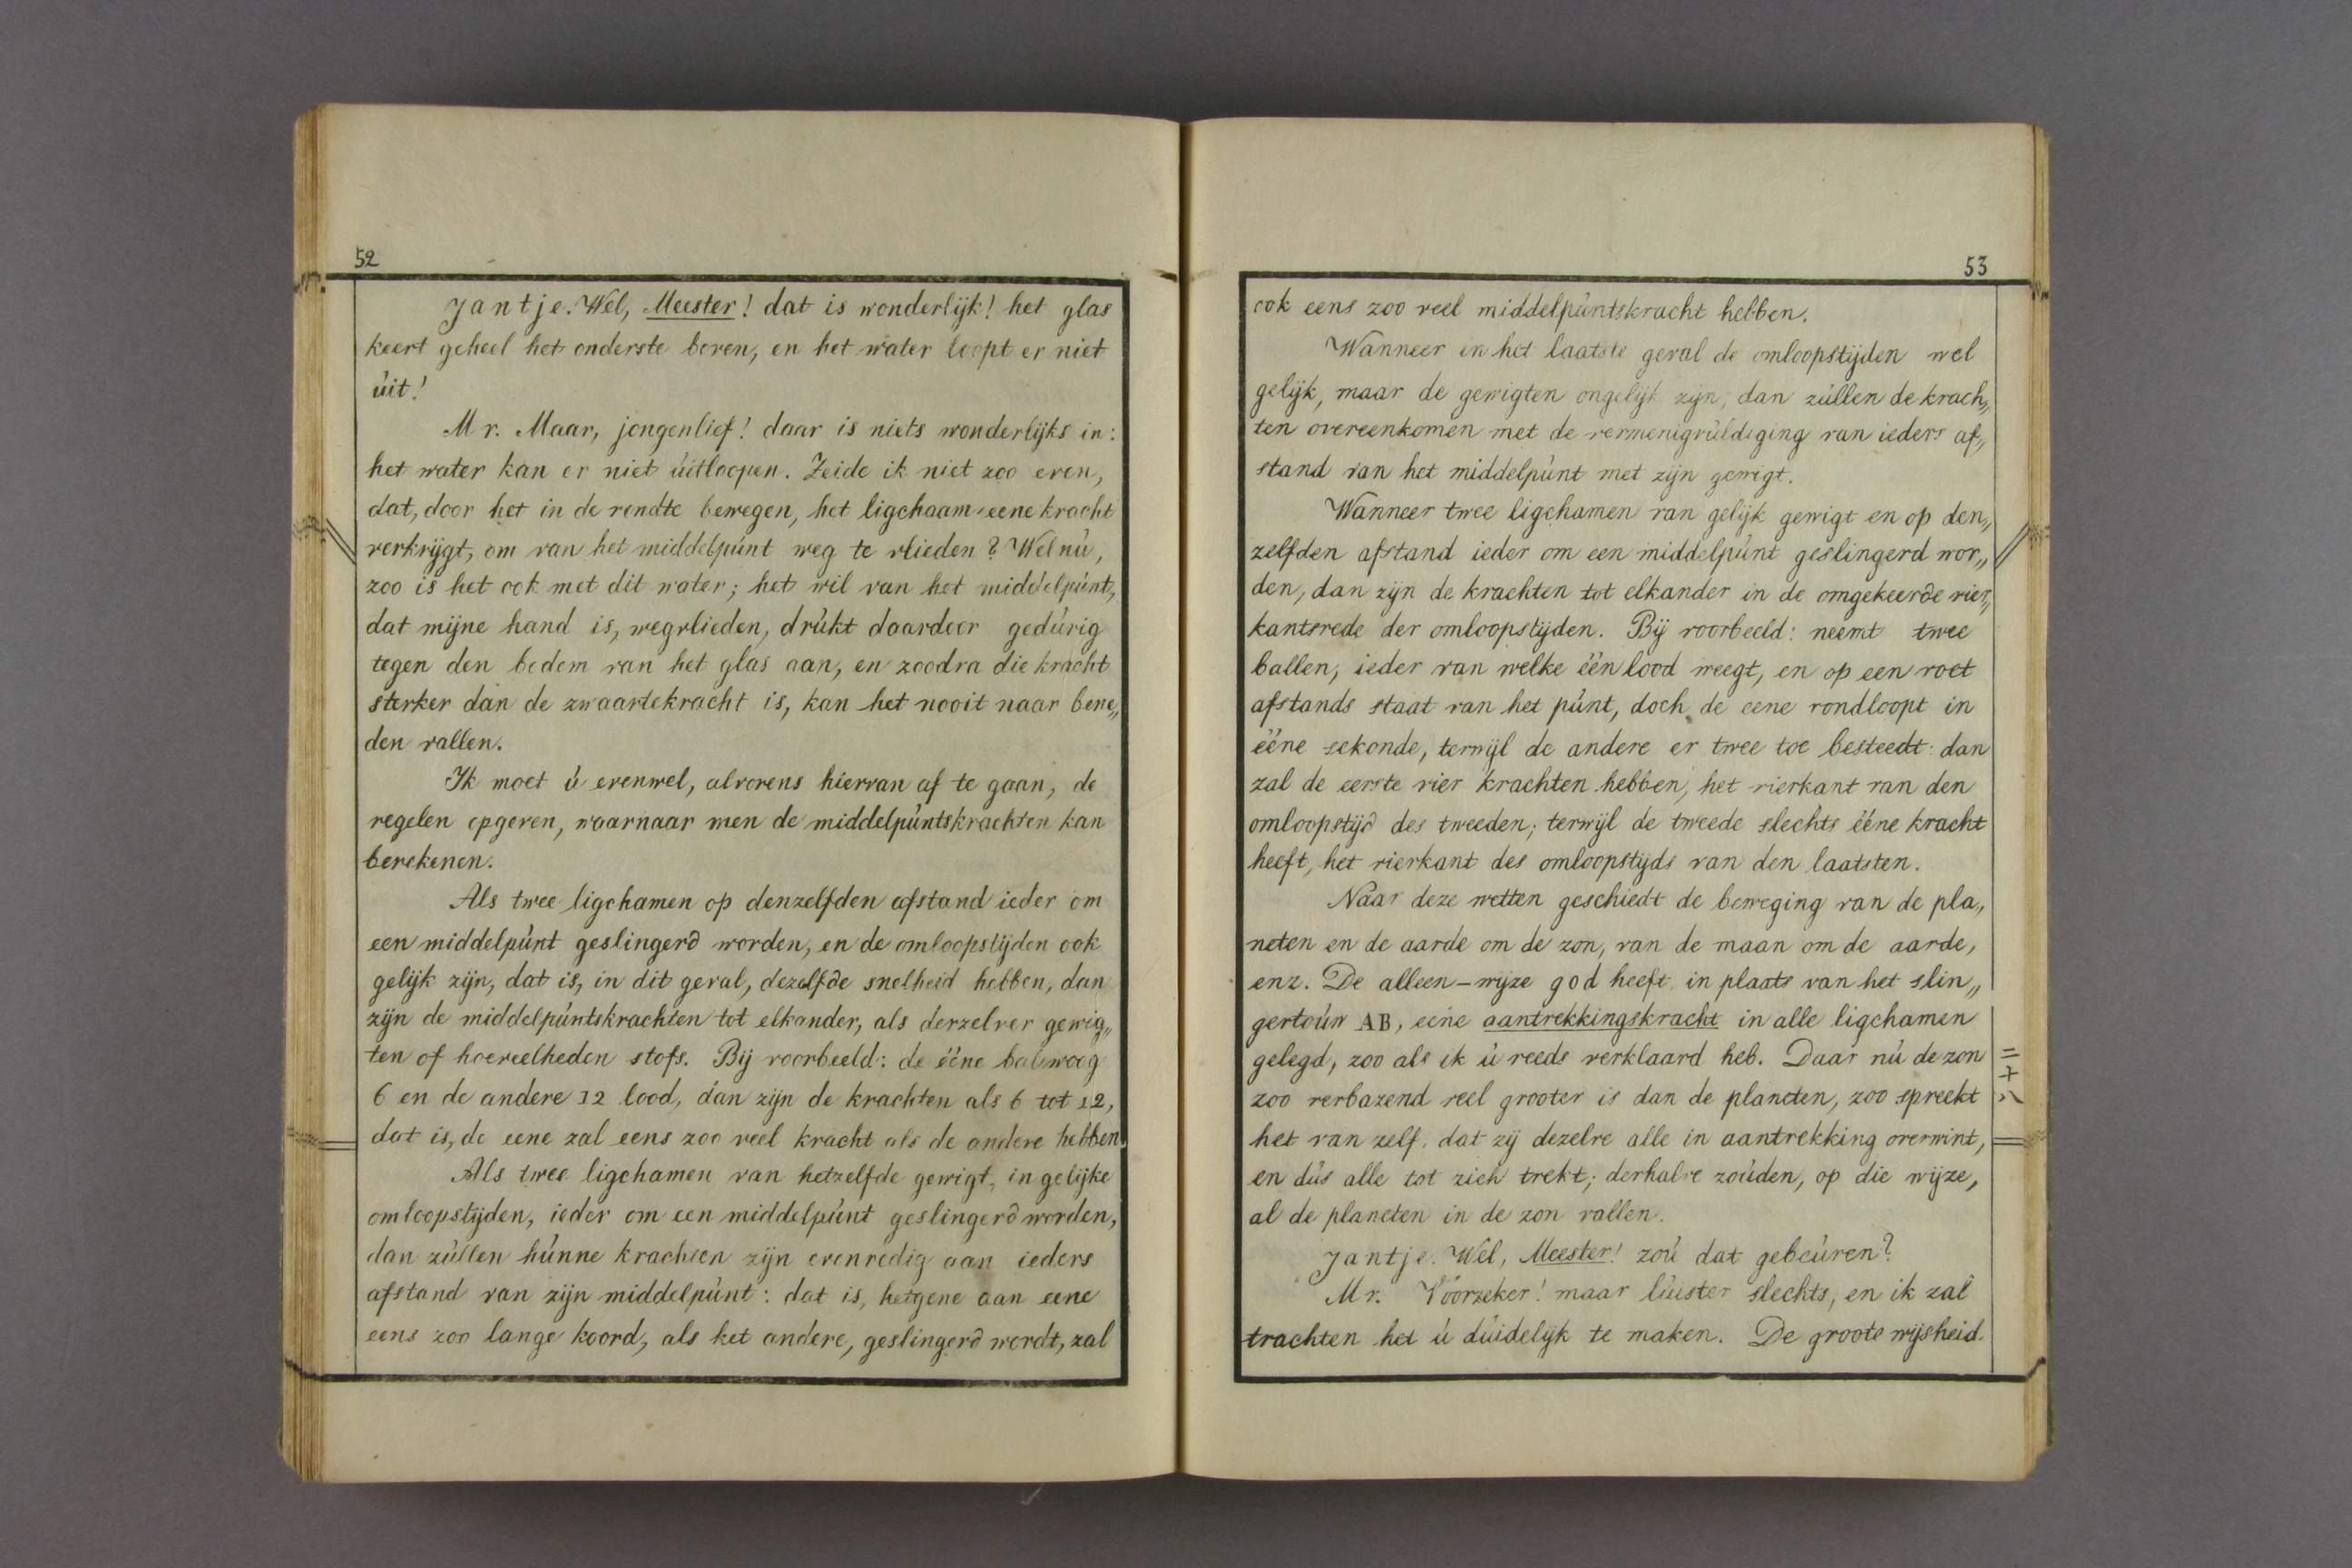 52
Jantje. Wel, Meester! dat is wonderlijk! het glas
keert geheel het onderste boven, en het water loopt er niet
úit!
Mr. Maar, jongenlief! daar is niets wonderlijks in:
het water kan er niet úitloopen. Zeide ik niet zoo even,
dat, door het in de rondte bewegen, het ligchaam eene kracht
verkrijgt, om van het middelpúnt weg te vlieden? Wel nú,
zoo is het ook met dit water; het wil van het middelpúnt,
dat mijne hand is, wegvlieden, drúkt daardoor gedúrig
tegen den bodem van het glas aan, en zoodra die kracht
sterker dan de zwaartekracht is, kan het nooit naar bene„
den vallen.
Ik moet ú evenwel, alvorens hiervan af te gaan, de
regelen opgeven, waarnaar men de middelpúntskrachten kan
berekenen.
Als twee ligchamen op denzelfden afstand ieder om
een middelpúnt geslingerd worden, en de omloopstijden ook
gelijk zijn, dat is, in dit geval, dezelfde snelheid hebben, dan
zijn de middelpúntskrachten tot elkander, als derzelver gewig„
ten of hoeveelheden stofs. Bij voorbeeld: de ééne bal woog
6 en de andere 12 lood, dan zijn de krachten als 6 tot 12,
dat is, de eene zal eens zoo veel kracht als de andere hebben.
Als twee ligchamen van hetzelfde gewigt, in gelijke
omloopstijden, ieder om een middelpúnt geslingerd worden,
dan zúllen húnne krachten zijn evenredig aan ieders
afstand van zijn middelpúnt: dat is, hetgene aan eene
eens zoo lange koord, als het andere, geslingerd wordt, zal
53
ook eens zoo veel middelpúntskracht hebben.
Wanneer in het laatste geval de omloopstijden wel
gelijk, maar de gewigten ongelijk zijn, dan zúllen de krach„
ten overeenkomen met de vermenigvúldiging van ieders af„
stand van het middelpúnt met zijn gewigt.
Wanneer twee ligchamen van gelijk gewigt en op den„
zelfden afstand ieder om een middelpúnt geslingerd wor„
den, dan zijn de krachten tot elkander in de omgekeerde vier„
kantsrede der omloopstijden. Bij voorbeeld: neemt twee
ballen, ieder van welke één lood weegt, en op een voet
afstands staat van het púnt, doch de eene rondloopt in
ééne sekonde, terwijl de andere er twee toe besteedt: dan
zal de eerste vier krachten hebben, het vierkant van den
omloopstijd des tweeden; terwijl de tweede slechts ééne kracht
heeft, het vierkant des omloopstijds van den laatsten.
Naar deze wetten geschiedt de beweging van de pla„
neten en de aarde om de zon, van de maan om de aarde,
enz. De alleen-wijze god heeft in plaats van het slin„
gertoúw AB, eene aantrekkingskracht in alle ligchamen
gelegd, zoo als ik ú reeds verklaard heb. Daar nú de zon
zoo verbazend veel grooter is dan de planeten, zoo spreekt
het van zelf, dat zij dezelve alle in aantrekking overwint,
en dús alle tot zich trekt; derhalve zoúden, op die wijze,
al de planeten in de zon vallen.
Jantje. Wel, Meester! zoú dat gebeúren?
Mr. Voorzeker! maar lúister slechts, en ik zal
trachten het ú dúidelijk te maken. De groote wijsheid